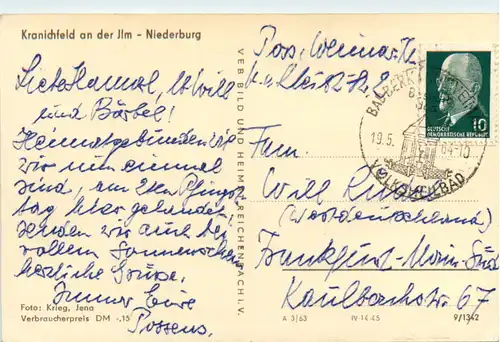 Kranichfeld an der Jlm - Niederburg
Liebe Hamal, lb Will
und Bärbel!
Heimatgebunden wie
wir nun einmal
sind, am 2ten Pfingst
tag hier gelandet,
senden wir auch bei
vollem Sonnenschein
herzliche Grüße.
Immer Eure
Possens.
Foto: Krieg, Jena
Verbraucherpreis DM -,15
VEB BILD UND HEIMAT REICHENBACH i. V.
A 3/63 IV-14-45 9/1342
Poss, Weimar
DEUTSCHE
DEMOKRATISCHE REPUBLIK
10
BAD BERKA
19.5. 64-10
VOLKSHEILBAD
Fam.
Will
(Westdeutschland)
Frankfurt-Main-Süd
Kaulbachstr. 67